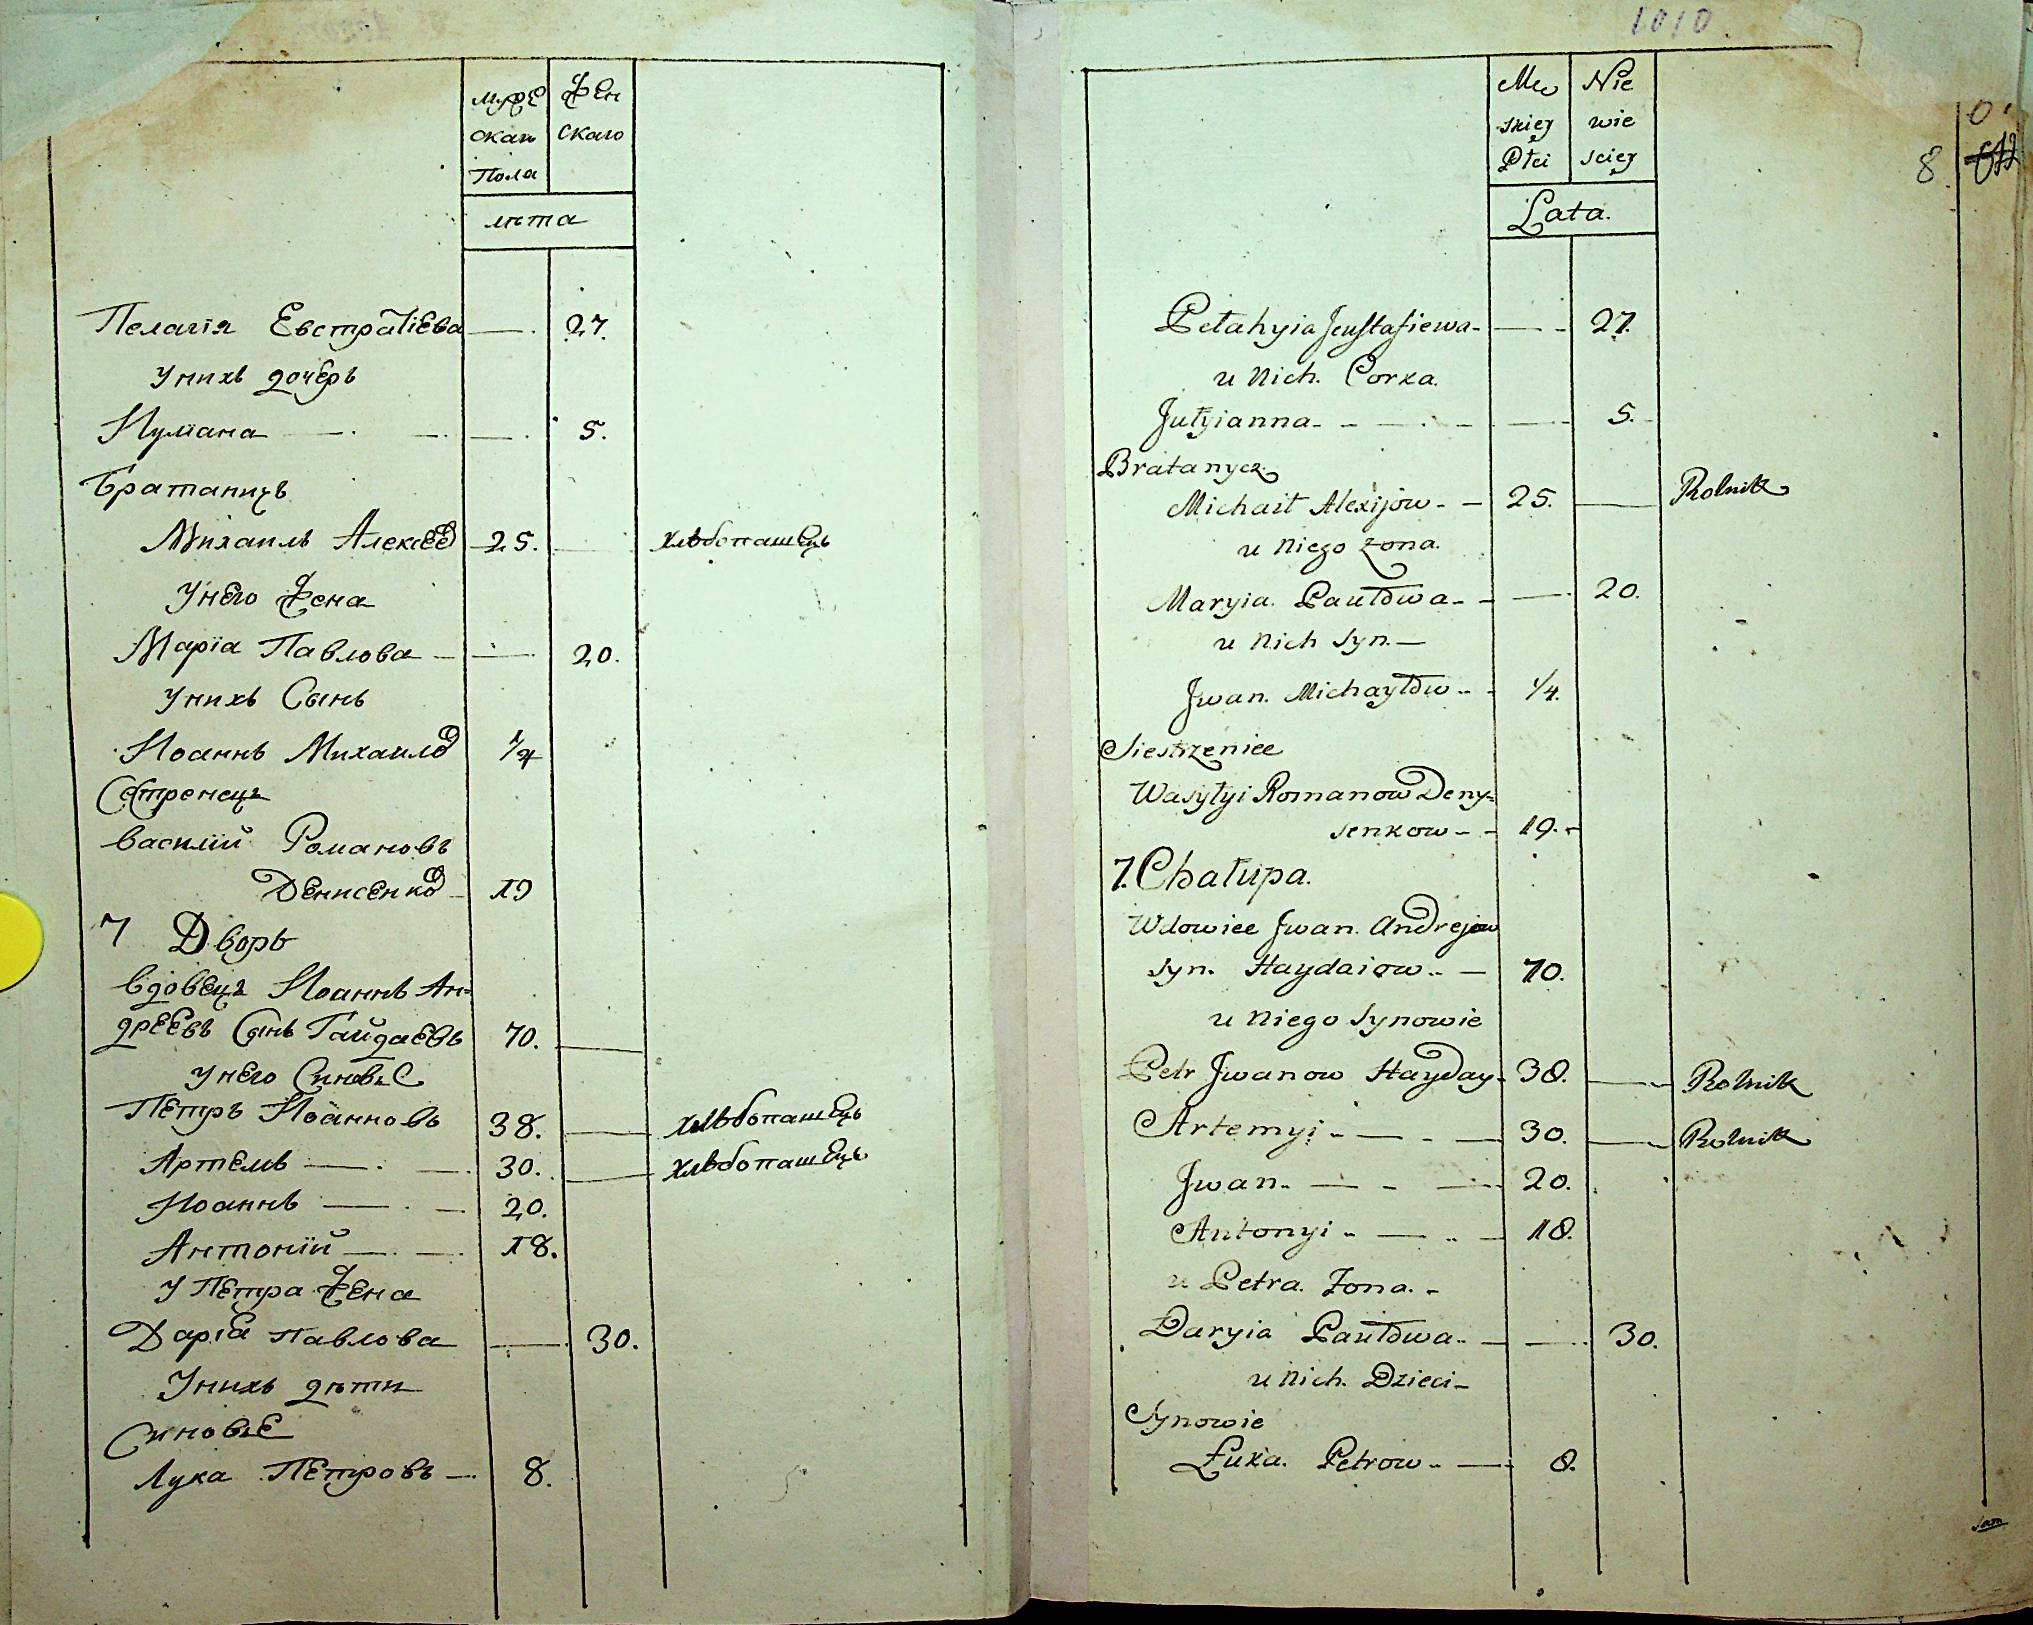 муже жен
скаго скаго
Пола
лѣта
Пелагія Евстратіева — 27.
Унихъ дочерь
Иуліана — . — . — . 5.
Братаничъ
Михаилъ Алексѣев 25. — хлѣбопашецъ
Унего жена
Марія Павлова — — 20.
Унихъ Сынъ
Иоаннъ Михаилов 1/4
Сестренецъ
василій Романовъ
Денисенков 19
7 Дворъ
вдовецъ Иоаннъ Ан=
дреевъ Сынъ Гайдаевъ 70. —
Унего Синовье
Петръ Иоанновъ 38. — хлѣбопашецъ
Артемъ — . — . 30. — хлѣбопашецъ
Иоаннъ — . — 20.
Антоній — . — . 18.
У Петра жена
Дарія павлова — 30.
Унихъ дѣти
Синовье
Лука Петровъ — . 8.
1010
Mę Nie
skiey wie
Płci sciey
Lata.
0
8.
Pełahyia Jewstafiewa - — - 27.
u Nich. Corka.
Jułyianna - - — . - — . - 5.
Bratanycz
Michaił Alexijow - — 25. — Rolnik
u Niego Zona.
Maryia. Pawłowa - - — . 20.
u Nich Syn. —
Jwan. Michayłow - - 1/4.
Siestrzeniec
Wasyłyi Romanow Deny=
senkow - - 19. -
7. Chałupa.
Wdowiec Jwan. Andrejow
Syn. Haydaiow - — 70.
u Niego Synowie
Petr Jwanow Hayday - 38. — Rolnik
Artemyi - — - — 30. — Rolnik
Jwan. - — - — 20.
Antonyi - — - — 18.
u Petra. Zona. -
Daryia Pawłowa - — — . 30.
u Nich. Dzieci -
Synowie
Łuka. Petrow - — 8.